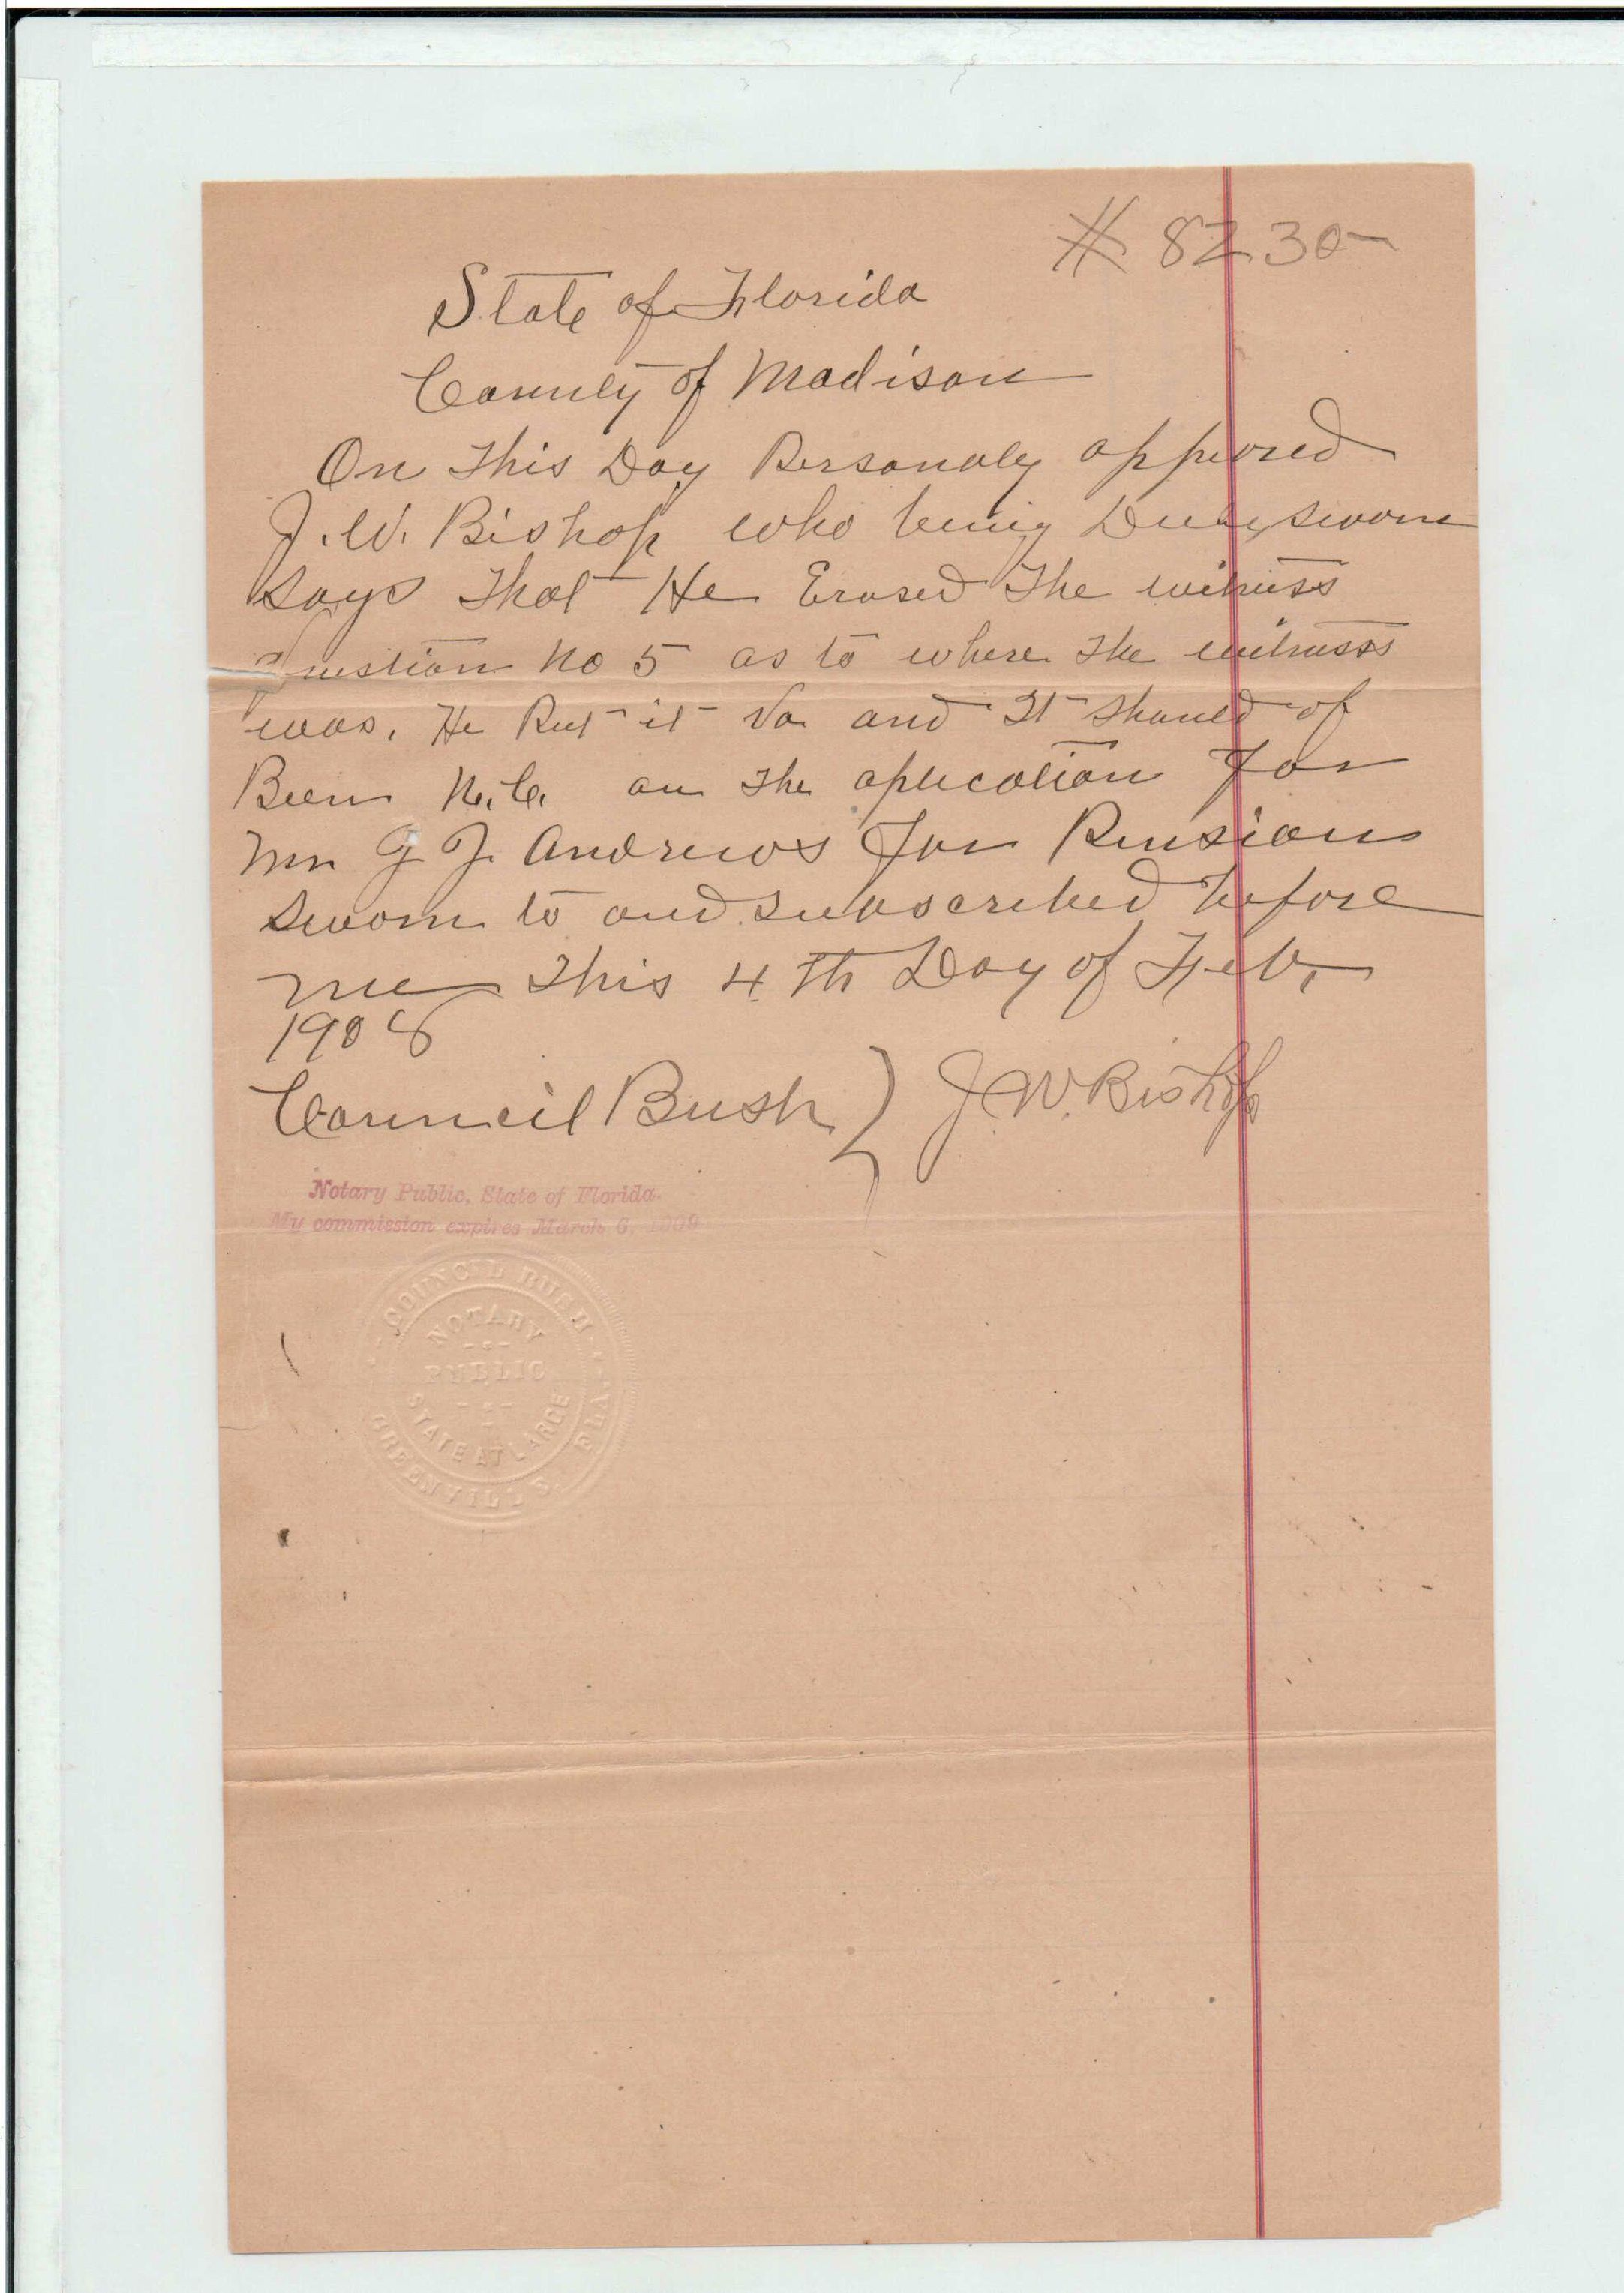 # 8230
State of Florida
County of Madison
On This Day Personaly appired
J. W. Bishop who being Duly sworn
says That He Erased The witness
question No 5 as to where the witnesss
was. He Put it Va and It should of
Been N.C. on the aplication for
Mr G J Andrews for Pension
sworn to and subscribed before
me This 4 Th Day of Feb,
1908
Council Bush } J. W. Bishop
Notary Public, State of Florida.
My commission expires March 6, 1909
COUNCIL BUSH
NOTARY
PUBLIC
STATE AT LARGE
GREENVILLE, FLA.